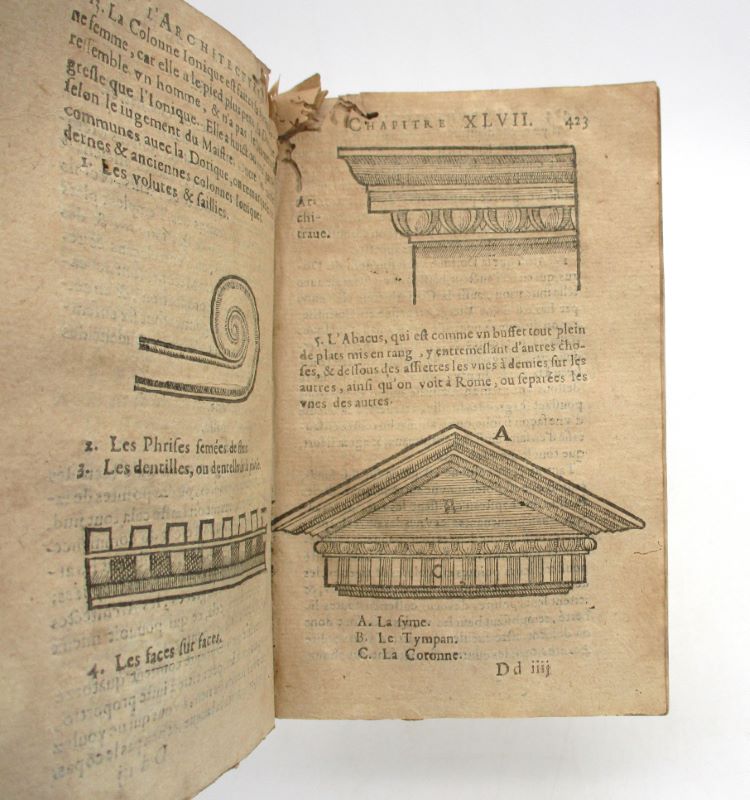 L'ARCHITECT
15. La Colonne Ionique est faite
ne femme, car elle a le pied plus
ressemble vn homme, & n'a pas
gresle que l'Ionique. Elle a huict
selon le iugement du Maistre
communes auec la Dorique,
dernes & anciennes colonnes Ioniques.
1. Les volutes & saillies.
2. Les Phrises semées de
3. Les dentilles, ou
4. Les faces sur faces.
CHAPITRE XLVII. 423
Ar
chi-
traue.
5. L'Abacus, qui est comme vn buffet tout plein
de plats mis en rang, y entremeslant d'autres cho-
ses, & dessous des assiettes les vnes à demies sur les
autres, ainsi qu'on voit à Rome, ou separées les
vnes des autres.
A
B
C
A. La syme.
B. Le Tympan.
C. La Coronne.
Dd iiij